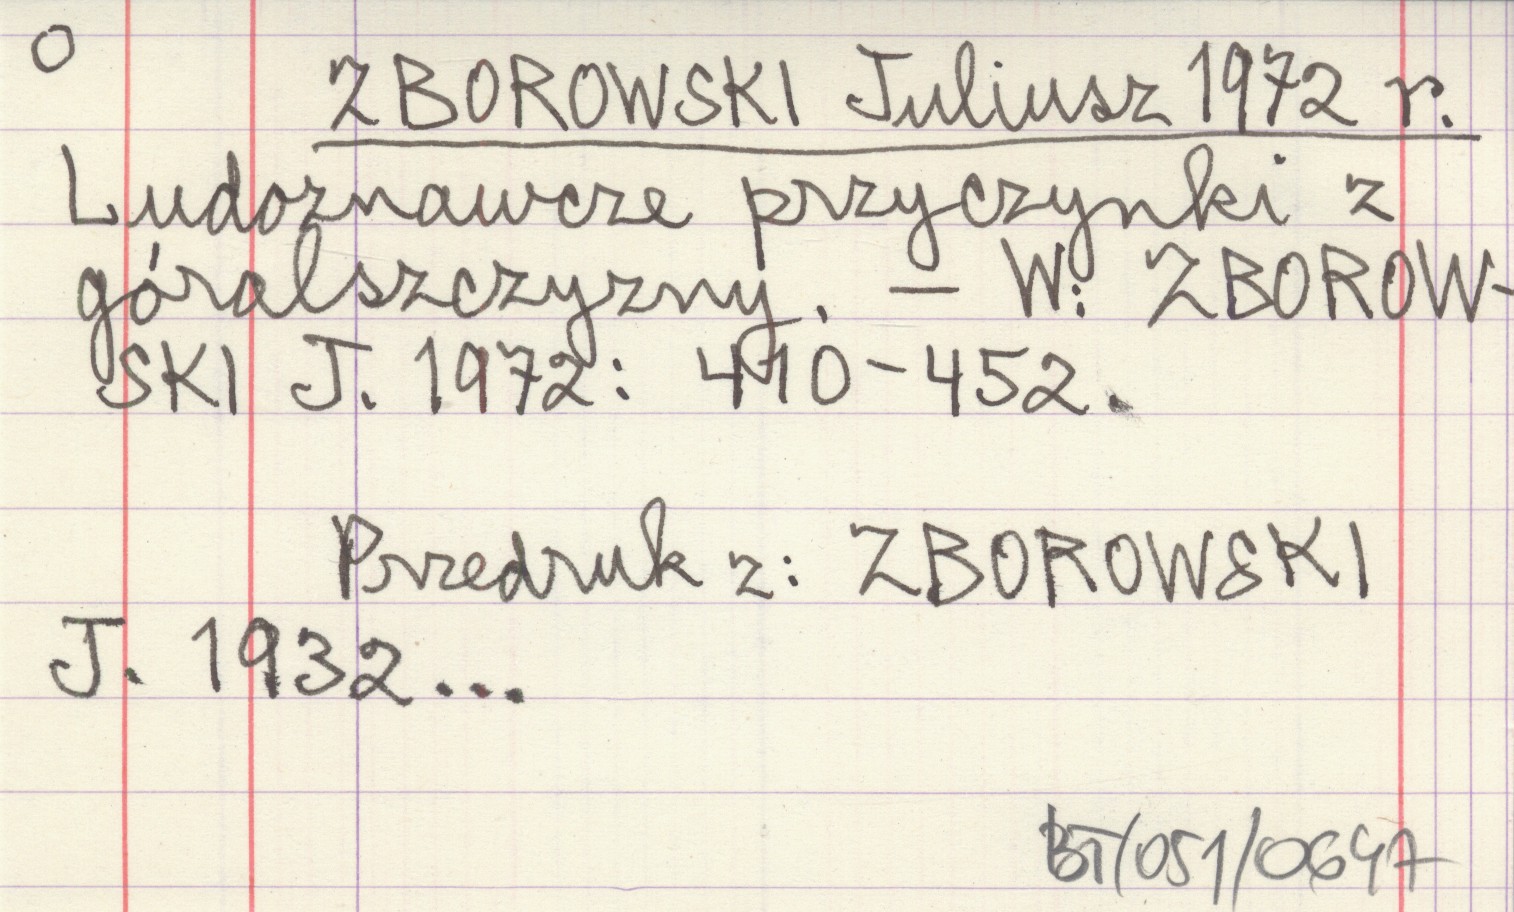 O
ZBOROWSKI Juliusz 1972 r.
Ludoznawcze przyczynki z
góralszczyzny. — W: ZBOROW-
SKI J. 1972: 410-452.
Przedruk z: ZBOROWSKI
J. 1932...
BT/051/0647